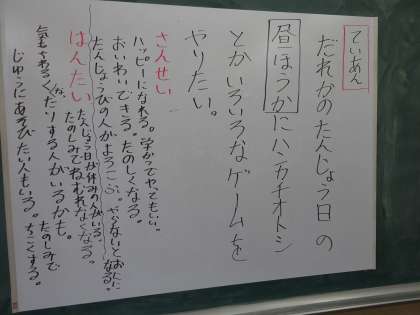 ていあん
だれかのたんじょう日の
昼ほうかにハンカチオトシ
とかいろいろなゲームを
やりたい。
さんせい
ハッピーになれる。学かつでやってもいい。
おいわいできる。たのしくなる。
たんじょうびの人がよろこぶ。やらないとおんになる。
はんたい
たんじょう日が休みの人がいる。
たのしみでねむれなくなる。
気もちわるくなたりする人がいるかも。
たのしみで
じゆうにあそびたい人もいる。ちこくする。